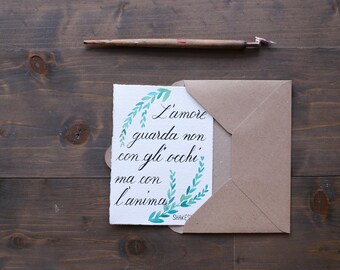 L'amore
guarda non
con gli occhi
ma con
l'anima